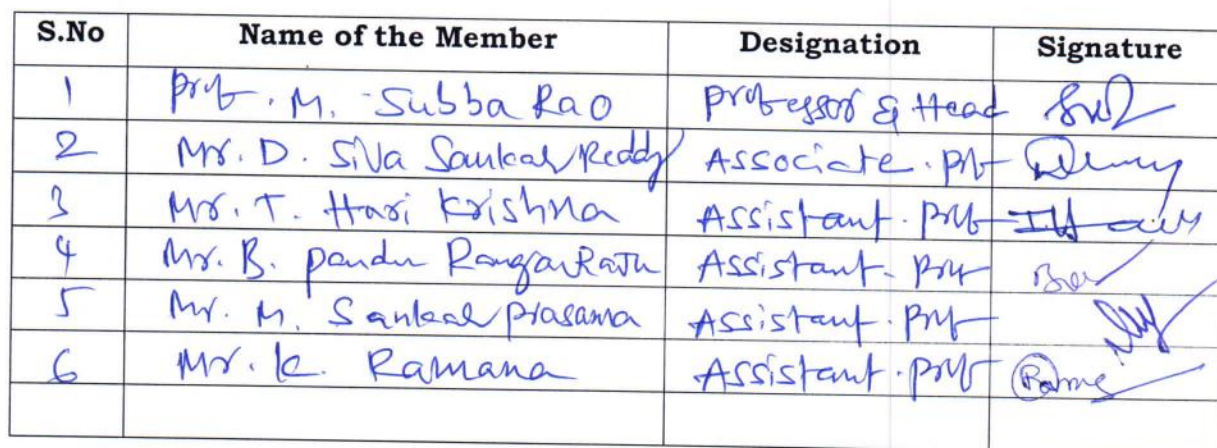 S.No Name of the Member Designation Signature
1 Prof. M. Subba Rao Professor & Head
2 Mr. D. Siva Sankar Reddy Associate. Prof
3 Mr. T. Hari Krishna Assistant. Prof
4 Mr. B. Pandu Ranga Raju Assistant. Prof
5 Mr. M. Sankar Prasanna Assistant. Prof
6 Mr. K. Ramana Assistant. Prof